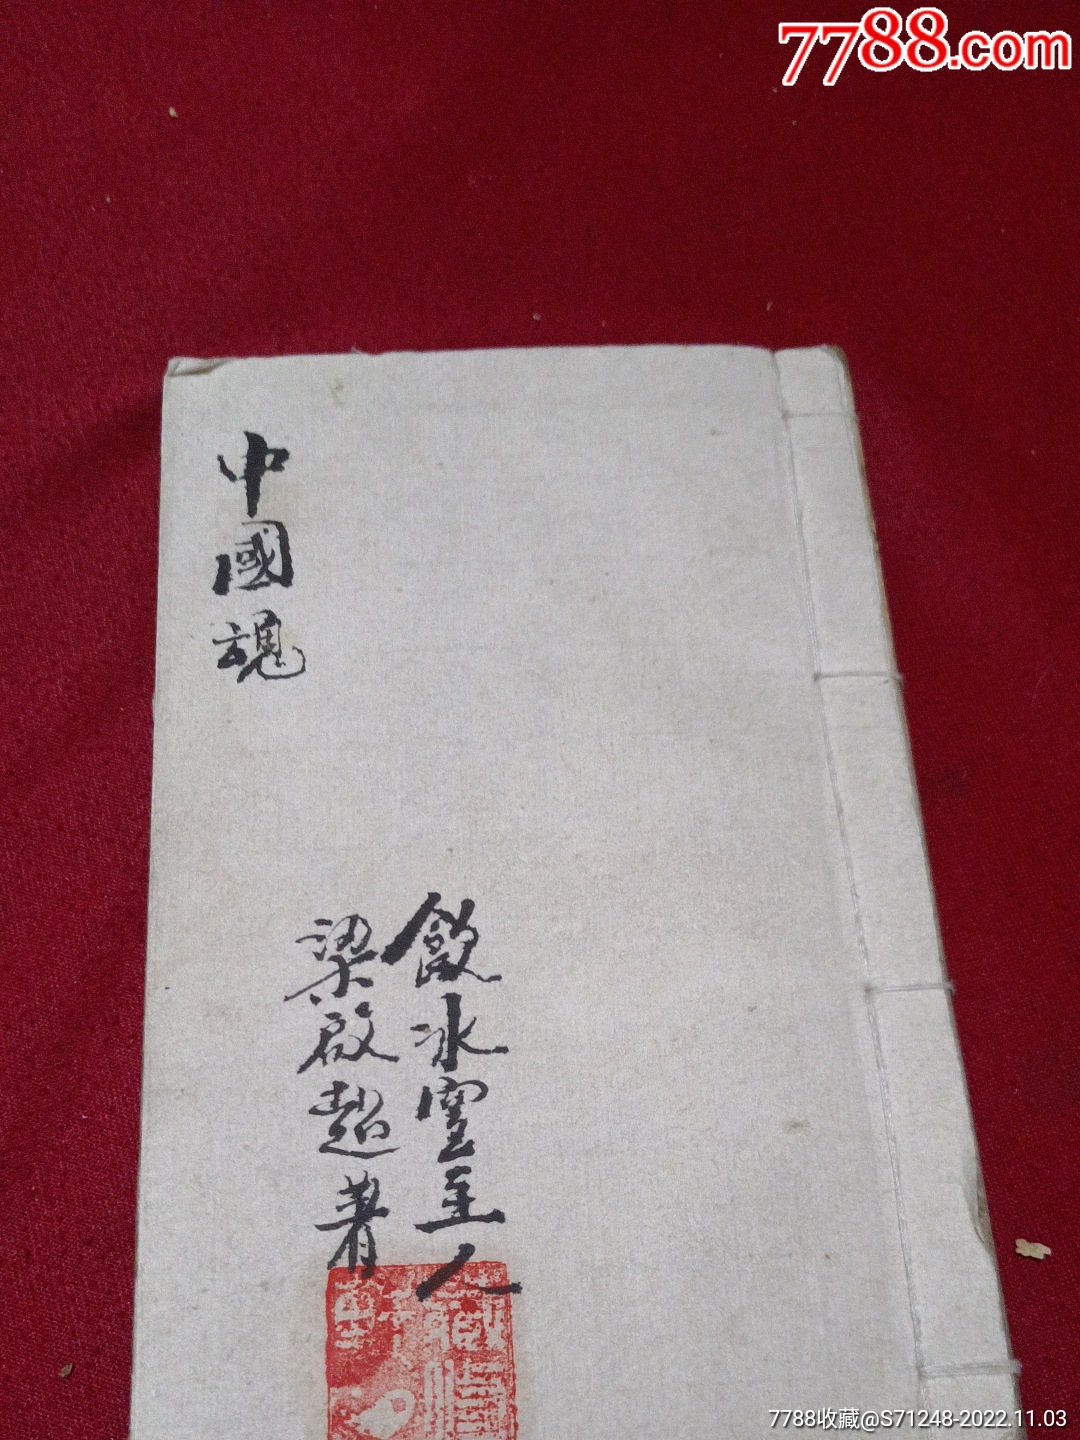 7788.com
中國魂
飲冰室主人
梁啟超著
7788收藏@S71248-2022.11.03